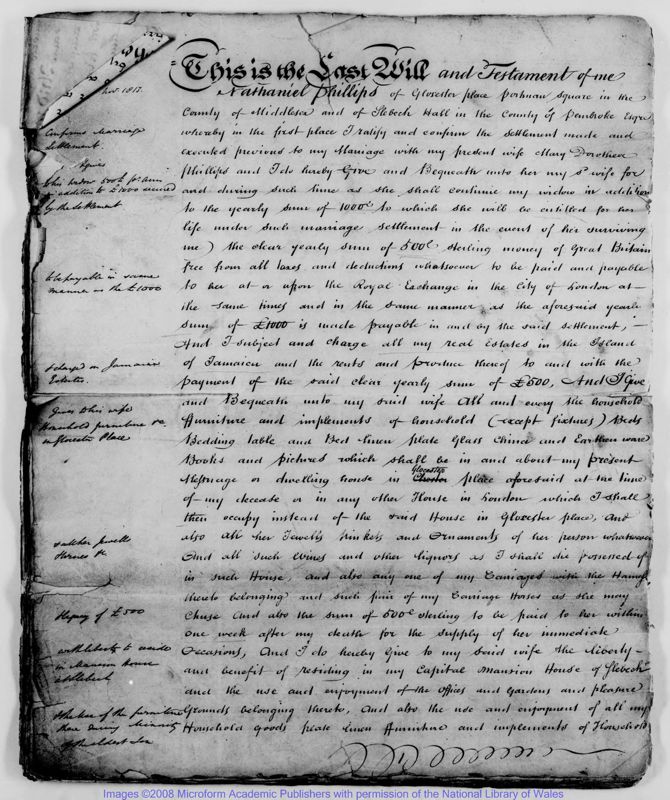 This is the Last Will and Testament of me
Nathaniel Phillips of Glocester place Portman Square in the
County of Middlesex and of Slebech Hall in the County of Pembroke Esqre
whereby in the first place I ratify and confirm the settlement made and
executed previous to my Marriage with my present wife Mary Dorothea
Phillips and I do hereby Give and Bequeath unto her my sd wife for
and during such time as she shall continue my widow in addition
to the yearly sum of 1000£ to which she will be entitled for her
life under such marriage settlement in the event of her surviving
me) the clear yearly sum of 500£ sterling money of Great Britain
free from all taxes and deductions whatsoever to be paid and payable
to her at or upon the Royal Exchange in the City of London at
the same times and in the same manner as the aforesaid yearly
sum of £1000 is made payable in and by the said settlement,
And I subject and charge all my real Estates in the Island
of Jamaica and the rents and produce thereof to and with the
payment of the said clear yearly sum of £500, And I Give
and Bequeath unto my said wife All and every the household
furniture and implements of household (except fixtures) Beds
Bedding table and Bed linen plate Glass China and Earthen ware
Books and pictures which shall be in and about my present
Messuage or dwelling house in Glocester place aforesaid at the time
of my decease or in any other House in London which I shall
then occupy instead of the said House in Glocester place, And
also all her Jewells trinkets and Ornaments of her person whatsoever
And all such Wines and other liquors as I shall die possessed of
in such House, and also any one of my Carriages with the Harness
thereto belonging and such pair of my Carriage Horses as she may
Chuse And also the sum of 500£ sterling to be paid to her within
one week after my death for the supply of her immediate
Occasions, And I do hereby Give to my said wife the liberty
and benefit of residing in my Capital Mansion House of Slebech
and the use and enjoyment of the Offices and Gardens and pleasure
Grounds belonging thereto, And also the use and enjoyment of all my
Household goods plate linen furniture and implements of Household
Confirms Marriage
Settlement.
Gives
his widow 500£ pr Ann
in addition to £1000 secured
by the Settlement
to be payable in same
manner as the £1000
& charged on Jamaica
Estates.
Gives to his wife
Household furniture &c
in Glocester Place
Legacy of £500
with liberty to reside
in Mansion house
at Slebech
& the use of the furniture
there during Minority
of the eldest Son
Images ©2008 Microform Academic Publishers with permission of the National Library of Wales